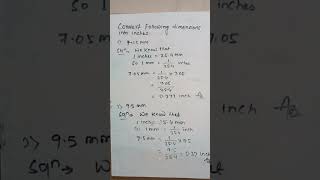 Convert following dimensions
into inches.
1) 7.05 mm
Solⁿ→ We know that
1 inches = 25.4 mm
So 1 mm = 1/25.4 inches
7.05 mm = 1/25.4 × 7.05
= 7.05/25.4
= 0.277 inch
2) 9.5 mm
Solⁿ→ We know that
1 inch = 25.4 mm
So 1 mm = 1/25.4 inch
9.5 mm = 1/25.4 × 9.5
= 9.5/25.4 = 0.37 inch